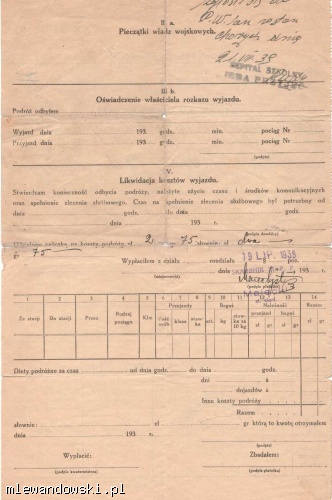 II a.
Pieczątki władz wojskowych.
SZPITAL SZKOLNY
IZBA PRZYJĘĆ
III b.
Oświadczenie właściciela rozkazu wyjazdu.
Podróż odbyłem
Wyjazd dnia 193 godz. min. pociąg Nr
Przyjazd dnia 193 godz. min. pociąg Nr
(podpis)
V.
Likwidacja kosztów wyjazdu.
Stwierdzam konieczność odbycia podróży, należyte użycie czasu i środków komunikacyjnych
oraz spełnienie zlecenia służbowego. Czas na spełnienie zlecenia służbowego był potrzebny od
dnia godz. do dnia godz.
193 r.
(podpis dowódcy)
zaliczkę na koszty podróży zł 2 gr 75 słownie: zł dwa
gr 75
Wypłaciłem z działu rozdziału poz.
dnia 19 LIP. 1939 193 r.
(podpis płatnika)
1 2 3 4 5 6 7 8 9 10 11 12 13 14
Przejazdy Bagaż Należność Razem
Ze stacji Do stacji Przez Rodzaj pociągu Klm. ilość osób klasa zł. gr. ilość kg stawka za 10 kg przejazd bagaż zł gr zł gr zł gr
Diety podróżne za czas od dnia godz. do dnia godz.
dni à
dojazdów à
Inne koszty podróży
Razem
słownie: zł gr którą to kwotę otrzymałem
dnia 193 r.
(podpis)
Wypłacić: Zbadałem:
(podpis kwatermistrza) (podpis płatnika)
mlewandowski.pl